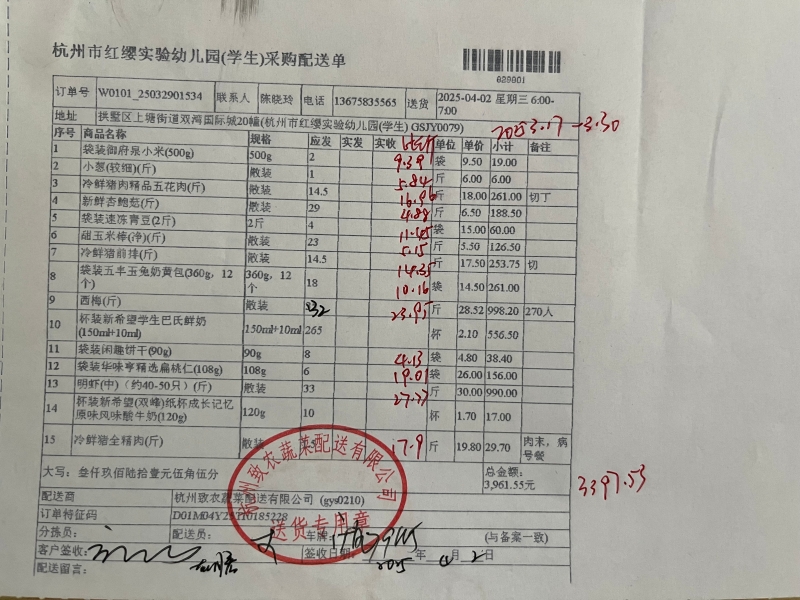 杭州市红缨实验幼儿园(学生)采购配送单
029901
订单号 W0101_25032901534 联系人 陈晓玲 电话 13675835565 送货 2025-04-02 星期三 6:00-7:00
地址 拱墅区上塘街道双湾国际城20幢(杭州市红缨实验幼儿园(学生) GSJY0079)
2025.3.17-3.30
序号 商品名称 规格 应发 实发 实收 单位 单价 小计 备注
1 袋装御府泉小米(500g) 500g 2 9.39 袋 9.50 19.00
2 小葱(较细)(斤) 散装 1 5.84 斤 6.00 6.00
3 冷鲜猪肉精品五花肉(斤) 散装 14.5 16.96 斤 18.00 261.00 切丁
4 新鲜杏鲍菇(斤) 散装 29 4.88 斤 6.50 188.50
5 袋装速冻青豆(2斤) 2斤 4 11.45 袋 15.00 60.00
6 甜玉米棒(净)(斤) 散装 23 5.15 斤 5.50 126.50
7 冷鲜猪前排(斤) 散装 14.5 14.35 斤 17.50 253.75 切
8 袋装五丰玉兔奶黄包(360g，12个) 360g，12个 18 10.16 袋 14.50 261.00
9 西梅(斤) 散装 32 23.95 斤 28.52 998.20 270人
10 杯装新希望学生巴氏鲜奶(150ml+10ml) 150ml+10ml 265 杯 2.10 556.50
11 袋装闲趣饼干(90g) 90g 8 4.13 袋 4.80 38.40
12 袋装华味亨精选扁桃仁(108g) 108g 6 19.01 袋 26.00 156.00
13 明虾(中)（约40-50只）(斤) 散装 33 27.77 斤 30.00 990.00
14 杯装新希望(双峰)纸杯成长记忆原味风味酸牛奶(120g) 120g 10 杯 1.70 17.00
15 冷鲜猪全精肉(斤) 散装 17.9 斤 19.80 29.70 肉末，病号餐
大写：叁仟玖佰陆拾壹元伍角伍分 总金额：3,961.55元
3397.53
配送商 杭州致农蔬菜配送有限公司 (gys0210)
订单特征码
杭州致农蔬菜配送有限公司
送货专用章
分拣员： 配送员： 车牌： (与备案一致)
客户签收： 签收日期： 2025年4月2日
配送留言：